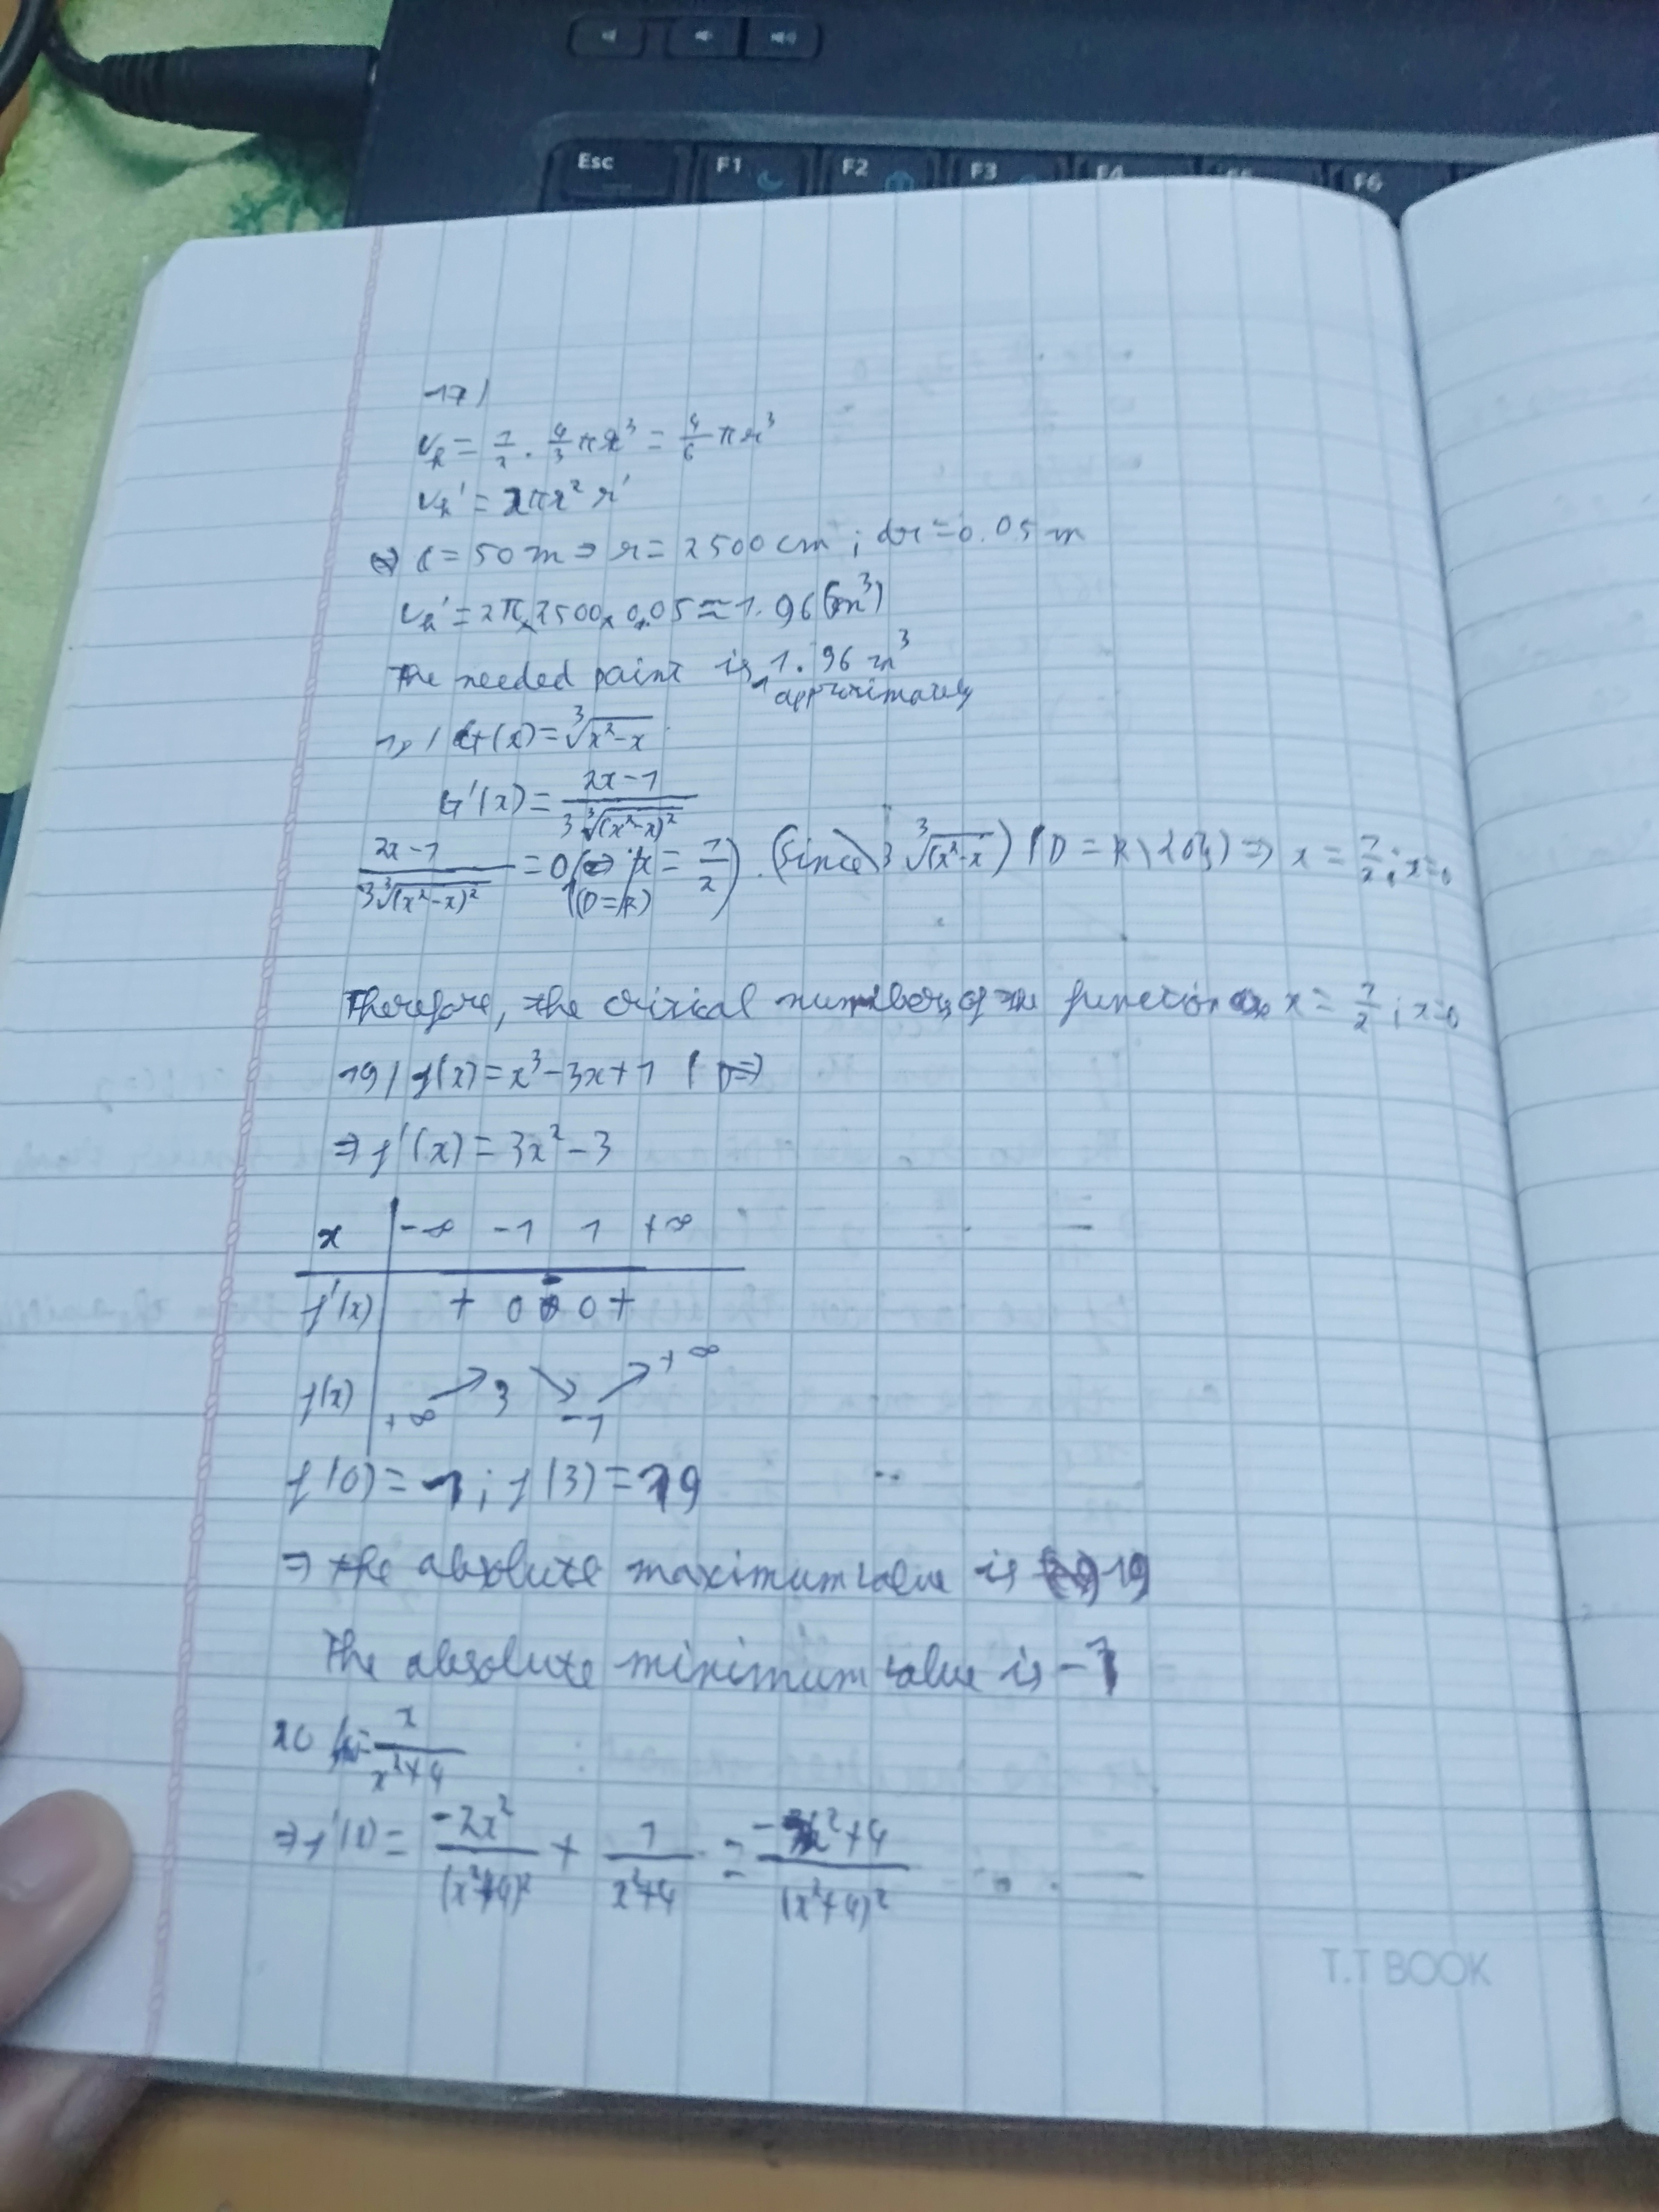 Esc F1 F2 F3 F4 F5 F6
17/
V_h = 1/2 . 4/3 πr³ = 4/6 πr³
V_h' = 2πr² r'
⇔ d = 50 m ⇒ r = 2500 cm ; dr = 0.05 m
V_h' = 2π × 2500 × 0.05 ≈ 1.96 (m³)
The needed paint is 1.96 m³
approximately
18/ G(x) = ∛(x²-x)
G'(x) = (2x-1)/(3∛(x²-x)²)
(2x-1)/(3∛(x²-x)²) = 0 (⇔ x = 1/2). (Since 3∛(x²-x)) (D = R\{0}) ⇒ x = 1/2 ; x=0
(D=R)
Therefore, the critical numbers of the function are x = 1/2 ; x=0
19/ f(x) = x³-3x+1 ( D⇒
⇒ f'(x) = 3x²-3
x -∞ -1 1 +∞
f'(x) + 0 - 0 +
f(x) +∞ ↗ 3 ↘ -1 ↗ +∞
f(0) = 1 ; f(3) = 19
⇒ the absolute maximum value is 19
The absolute minimum value is -1
20/ = x/(x²+4)
⇒ f'(x) = -2x²/(x²+4)² + 1/(x²+4) = (-x²+4)/(x²+4)²
T.T BOOK